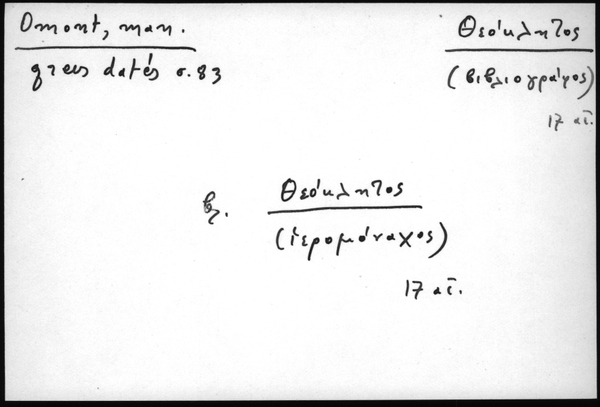 Omont, man.
grecs datés σ. 83
Θεόκλητος
(βιβλιογράφος)
17 αἰ.
βλ. Θεόκλητος
(ἱερομόναχος)
17 αἰ.